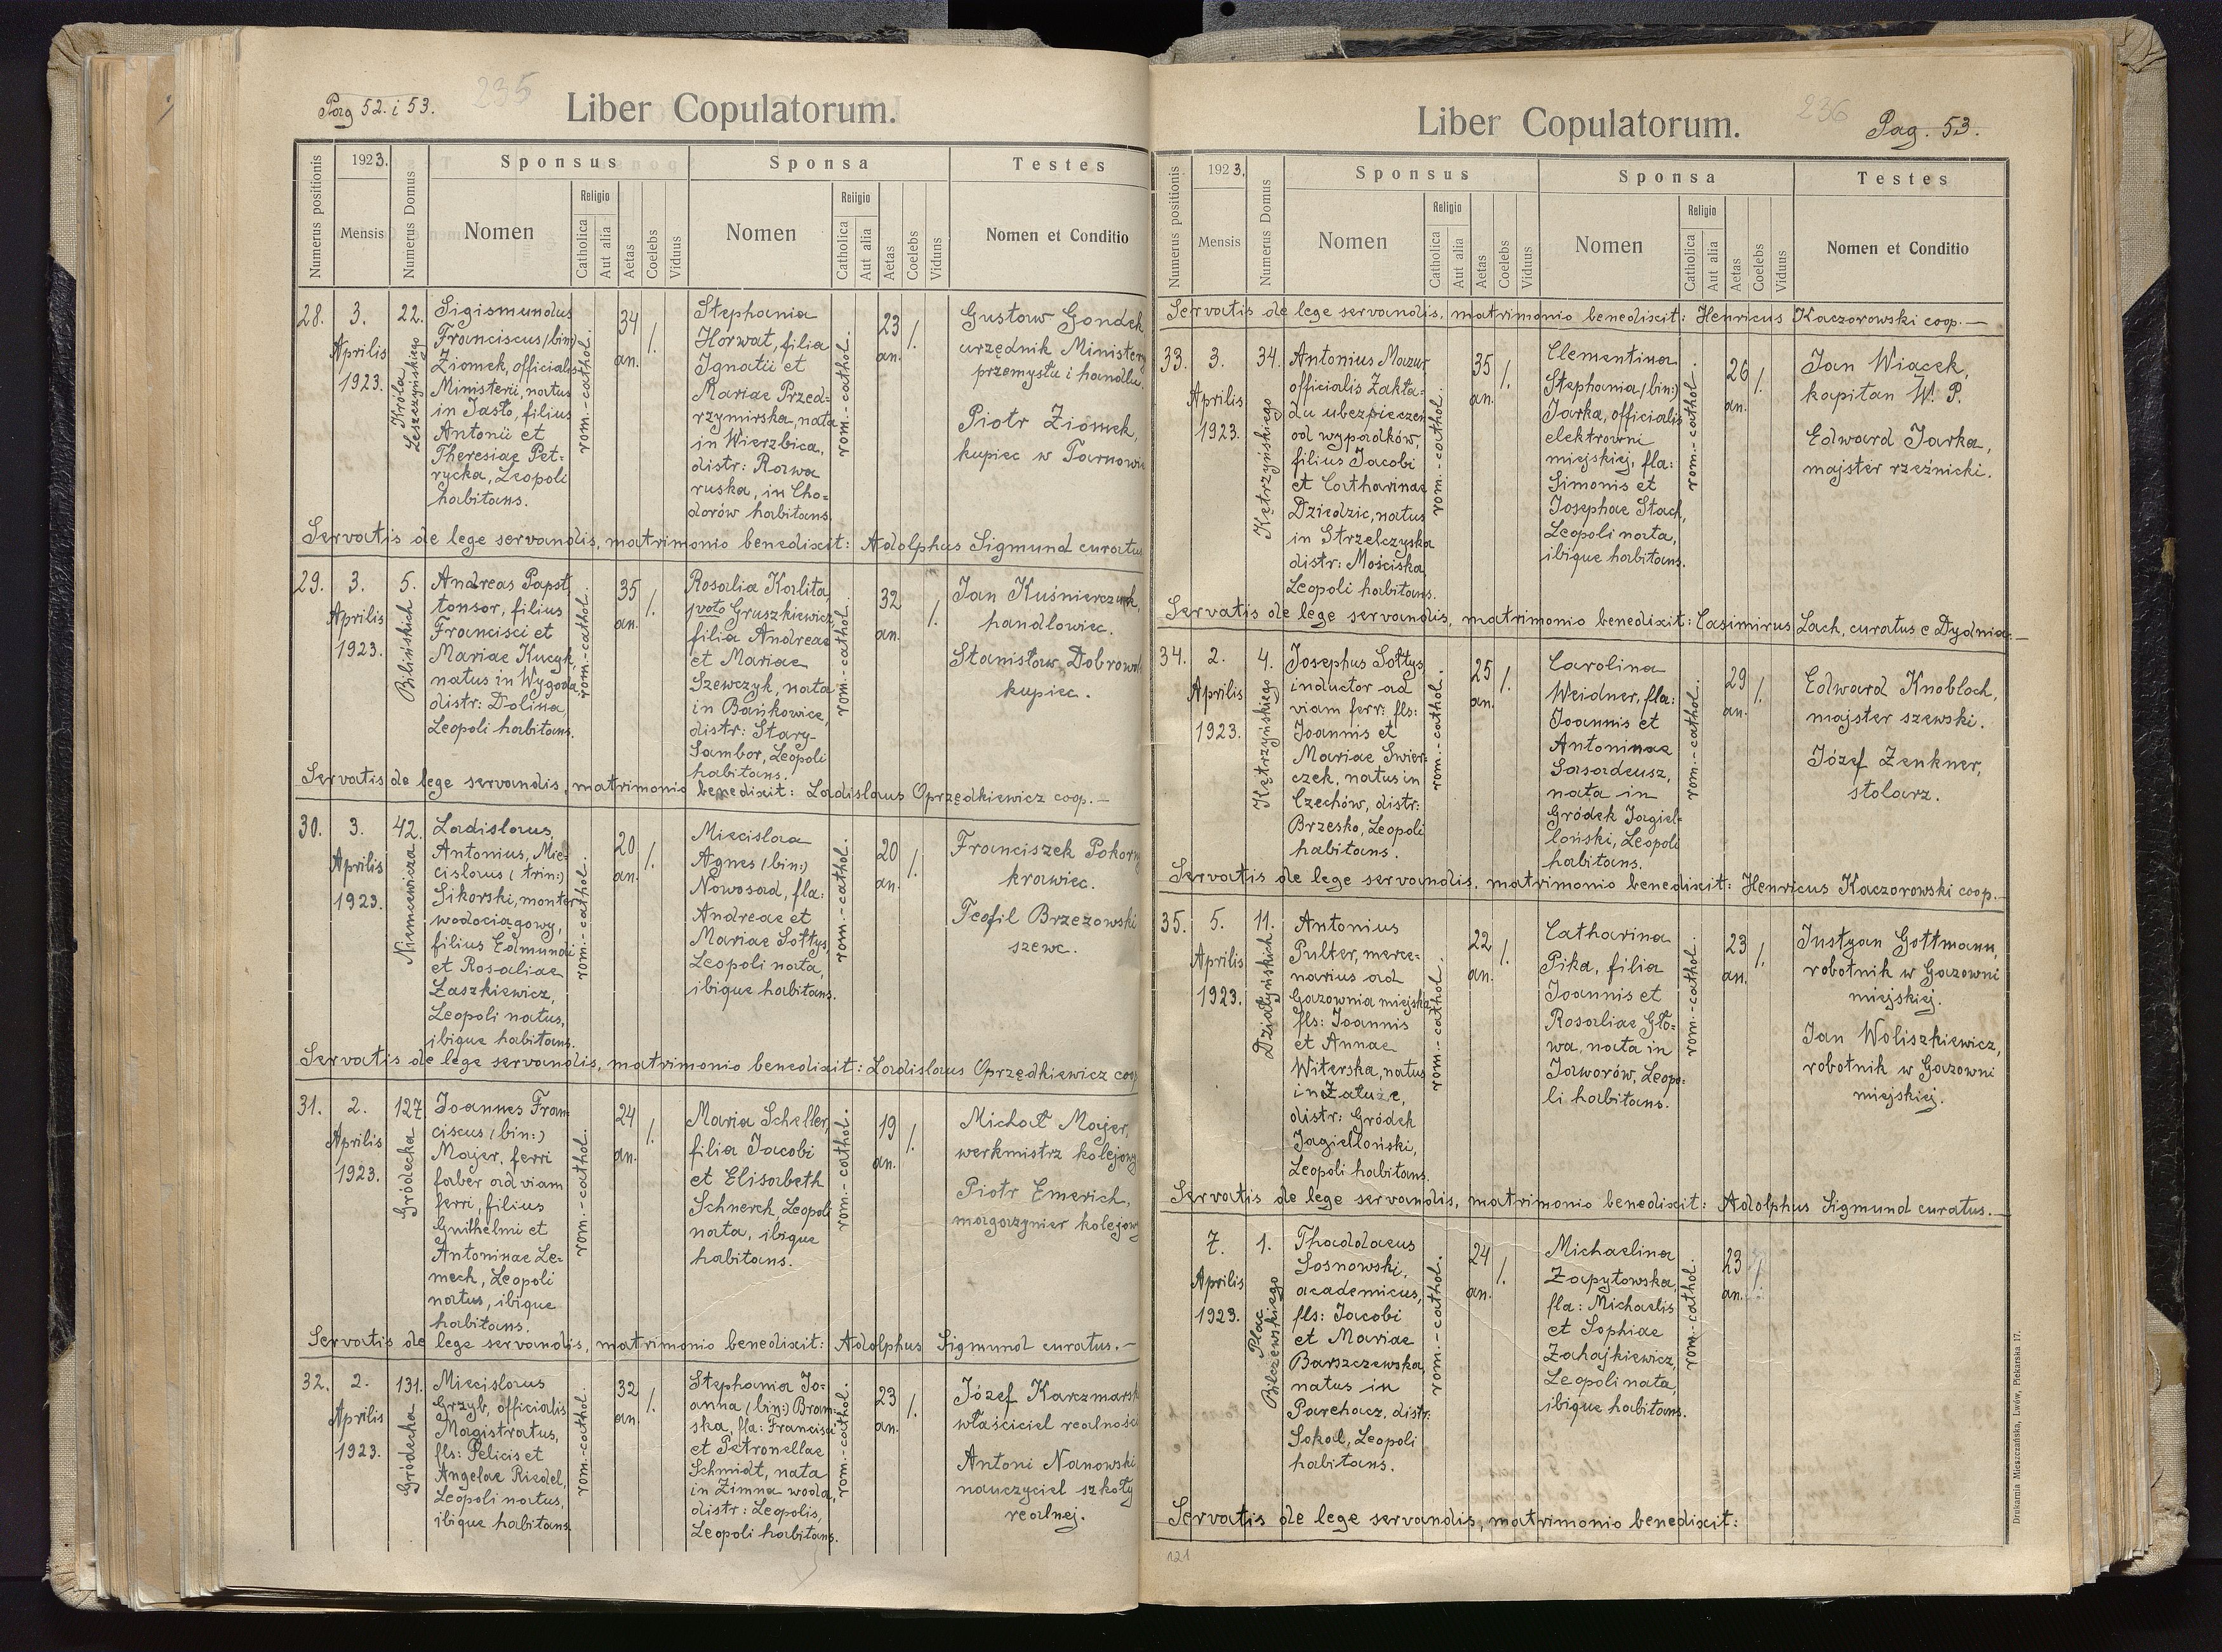 Pag 52. i 53.
235
Liber Copulatorum.
Numerus positionis
1923.
Mensis
Numerus Domus
Sponsus
Nomen
Religio
Catholica
Aut alia
Aetas
Coelebs
Viduus
Sponsa
Nomen
Religio
Catholica
Aut alia
Aetas
Coelebs
Viduus
Testes
Nomen et Conditio
28.
3.
Aprilis
1923.
22.
Króla
Leszczyńskiego
Sigismundus
Franciscus (bin:)
Ziomek, officialis
Ministerii, natus
in Jasło, filius
Antonii et
Theresiae Pet-
rycka, Leopoli
habitans.
rom.-cathol.
34
an.
1.
Stephania
Horwat, filia
Ignatii et
Mariae Przed-
rzymirska, nata
in Wierzbica,
distr: Rawa
ruska, in Cho-
dorów habitans.
rom.-cathol.
23
an.
1.
Gustaw Gondek
urzędnik Ministery
przemysłu i handlu.
Piotr Ziomek,
kupiec w Tarnowie
Servatis de lege servandis, matrimonio benedixit: Adolphus Sigmund curatus
29.
3.
Aprilis
1923.
5.
Bilińskich
Andreas Papst,
tonsor, filius
Francisci et
Mariae Kucyk,
natus in Wygoda,
distr: Dolina,
Leopoli habitans.
rom.-cathol.
35
an.
1.
Rosalia Kalita,
1voto Gruszkiewicz,
filia Andreae
et Mariae
Szewczyk, nata
in Bańkowice,
distr: Stary-
Sambor, Leopoli
habitans.
rom.-cathol.
32
an.
1.
Jan Kuśnierczuk,
handlowiec.
Stanisław Dobrowol
kupiec.
Servatis de lege servandis, matrimonio benedixit: Ladislaus Oprzędkiewicz coop.—
30.
3.
Aprilis
1923.
42.
Niemcewicza
Ladislaus,
Antonius, Mie-
cislaus (trin:)
Sikorski, monter
wodociągowy,
filius Edmundi
et Rosaliae
Łaszkiewicz,
Leopoli natus,
ibique habitans.
rom.-cathol.
20
an.
1.
Miecislaa
Agnes (bin:)
Nowosad, fla:
Andreae et
Mariae Sołtys,
Leopoli nata,
ibique habitans.
rom.-cathol.
20
an.
1.
Franciszek Pokorny
krawiec.
Teofil Brzezowski
szewc.
Servatis de lege servandis, matrimonio benedixit: Ladislaus Oprzędkiewicz coop
31.
2.
Aprilis
1923.
127
Gródecka
Joannes Fran-
ciscus (bin:)
Majer, ferri
faber ad viam
ferri, filius
Guilhelmi et
Antoninae Le-
mech, Leopoli
natus, ibique
habitans.
rom.-cathol.
24
an.
1.
Maria Scheller,
filia Jacobi
et Elisabeth
Schnerch, Leopoli
nata, ibique
habitans.
rom.-cathol.
19
an.
1.
Michał Majer,
werkmistrz kolejowy
Piotr Emerich,
magazynier kolejowy
Servatis de lege servandis, matrimonio benedixit: Adolphus Sigmund curatus.—
32.
2.
Aprilis
1923.
131.
Gródecka
Miecislaus
Grzyb, officialis
Magistratus,
fls: Felicis et
Angelae Riedel,
Leopoli natus,
ibique habitans.
rom.-cathol.
32
an.
1.
Stephania Jo-
anna (bin:) Bram-
ska, fla: Francisci
et Petronellae
Schmidt, nata
in Zimna woda,
distr: Leopolis,
Leopoli habitans.
rom.-cathol.
23
an.
1.
Józef Karczmarsk
właściciel realności
Antoni Nanowski
nauczyciel szkoły
realnej.
236
Pag. 53.
Liber Copulatorum.
Numerus positionis
1923,
Mensis
Numerus Domus
Sponsus
Nomen
Religio
Catholica
Aut alia
Aetas
Coelebs
Viduus
Sponsa
Nomen
Religio
Catholica
Aut alia
Aetas
Coelebs
Viduus
Testes
Nomen et Conditio
Servatis de lege servandis, matrimonio benedixit: Henricus Kaczorowski coop.—
33.
3.
Aprilis
1923.
34.
Kętrzyńskiego
Antonius Mazur
officialis Zakła-
du ubezpieczeń
od wypadków,
filius Jacobi
et Catharinae
Dziedzic, natus
in Strzelczyska
distr: Mościska,
Leopoli habitans.
rom.-cathol.
35
an.
1.
Clementina
Stephania (bin:)
Jarka, officialis
elektrowni
miejskiej, fla:
Simonis et
Josephae Stach,
Leopoli nata,
ibique habitans.
rom.-cathol.
26
an.
1.
Jan Wiącek,
kapitan W. P.
Edward Jarka,
majster rzeźnicki.
Servatis de lege servandis, matrimonio benedixit: Casimirus Lach, curatus e Dydnia.—
34.
2.
Aprilis
1923.
4.
Kętrzyńskiego
Josephus Sołtys,
inductor ad
viam ferr: fls:
Joannis et
Mariae Swier-
czek, natus in
Czechów, distr:
Brzesko, Leopoli
habitans.
rom.-cathol.
25
an.
1.
Carolina
Weidner, fla:
Joannis et
Antoninae
Sasadeusz,
nata in
Gródek Jagiel-
loński, Leopoli
habitans.
rom.-cathol.
29
an.
1.
Edward Knobloch,
majster szewski.
Józef Zenkner,
stolarz.
Servatis de lege servandis, matrimonio benedixit: Henricus Kaczorowski coop.—
35.
5.
Aprilis
1923.
11.
Działyńskich
Antonius
Pulter, merce-
narius ad
Gazownia miejska,
fls: Joannis
et Annae
Witerska, natus
in Załuże,
distr: Gródek
Jagielloński,
Leopoli habitans.
rom.-cathol.
22
an.
1.
Catharina
Pika, filia
Joannis et
Rosaliae Gło-
wa, nata in
Jaworów, Leopo-
li habitans.
rom.-cathol.
23
an.
1.
Justyan Gottmann,
robotnik w Gazowni
miejskiej.
Jan Woliszkiewicz,
robotnik w Gazowni
miejskiej.
Servatis de lege servandis, matrimonio benedixit: Adolphus Sigmund curatus.—
7.
Aprilis
1923.
1.
Plac
Bilczewskiego
Thaddaeus
Sosnowski,
academicus,
fls: Jacobi
et Mariae
Barszczewska,
natus in
Parchacz, distr:
Sokal, Leopoli
habitans.
rom.-cathol.
24
an.
1.
Michaelina
Zapytowska,
fla: Michaelis
et Sophiae
Zahajkiewicz,
Leopoli nata,
ibique habitans.
rom.-cathol.
23
an.
1.
Servatis de lege servandis, matrimonio benedixit:
121
Drukarnia Mieszczańska, Lwów, Piekarska 17.